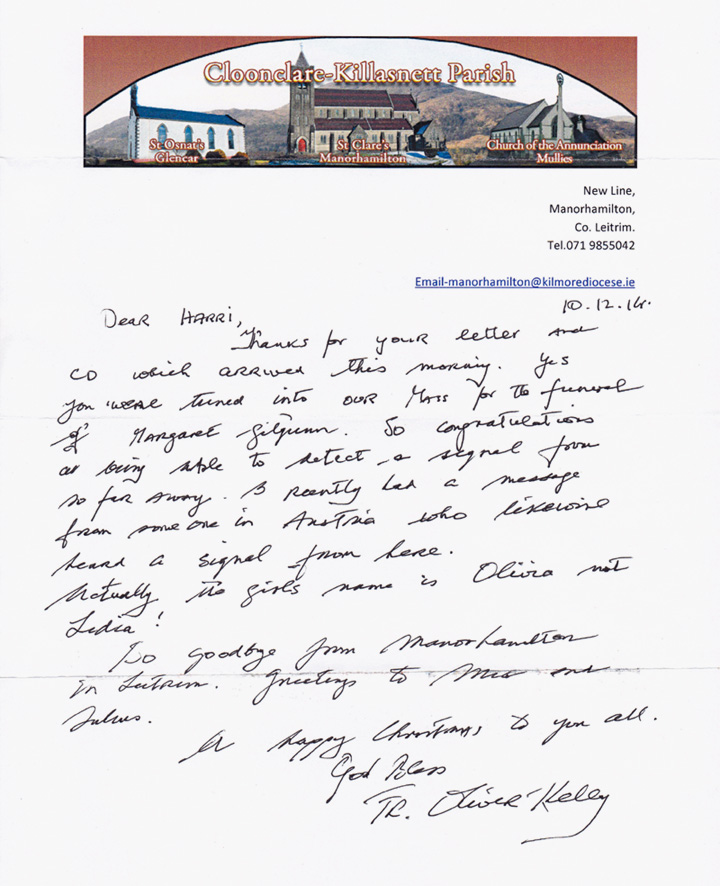 Cloonclare-Killasnett Parish
St Osnat's
Glencar
St Clare's
Manorhamilton
Church of the Annunciation
Mullies
New Line,
Manorhamilton,
Co. Leitrim.
Tel.071 9855042
Email-manorhamilton@kilmorediocese.ie
10.12.14.
Dear Harri,
Thanks for your letter and
CD which arrived this morning. Yes
you were tuned into our Mass for the funeral
of Margaret Gilgunn. So congratulations
on being able to detect a signal from
so far away. I recently had a message
from someone in Austria who likewise
heard a signal from here.
Actually the girl's name is Olivia not
Lidia!
So goodbye from Manorhamilton
in Leitrim. Greetings to and
Julius.
A happy Christmas to you all.
God Bless
Fr. Oliver Kelly